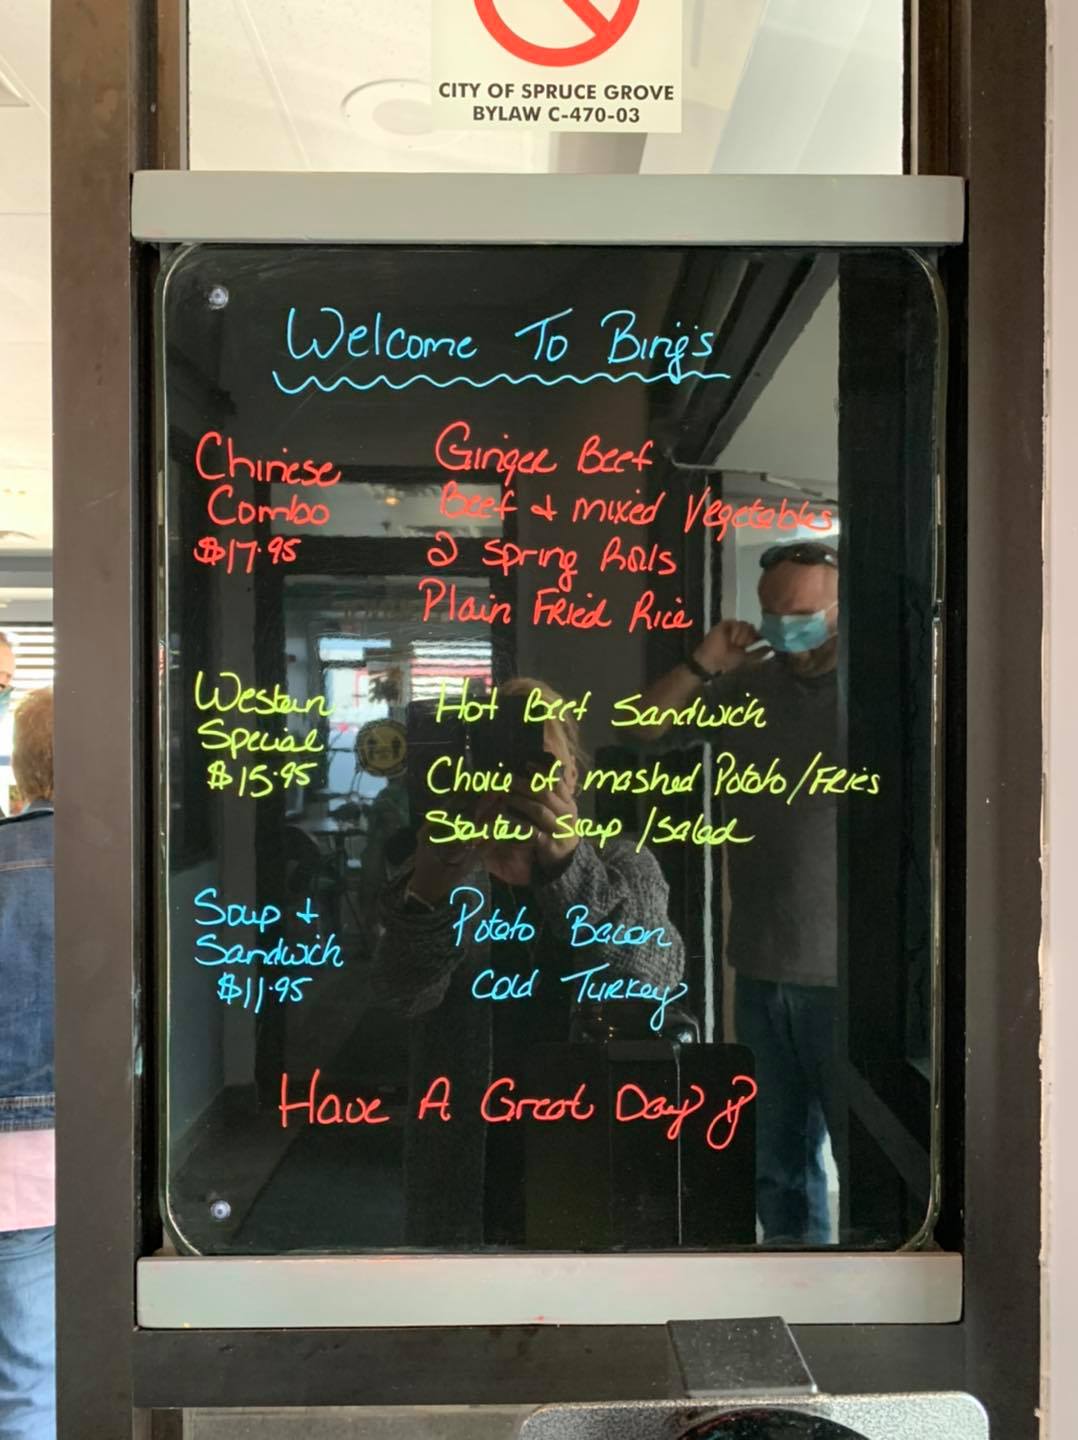 CITY OF SPRUCE GROVE
BYLAW C-470-03
Welcome To Bing's
Chinese
Combo
$17.95
Ginger Beef
Beef & mixed Vegetables
2 Spring Rolls
Plain Fried Rice
Western
Special
$15.95
Hot Beef Sandwich
Choice of mashed Potato/Fries
Starter Soup /Salad
Soup &
Sandwich
$11.95
Potato Bacon
Cold Turkey
Have A Great Day